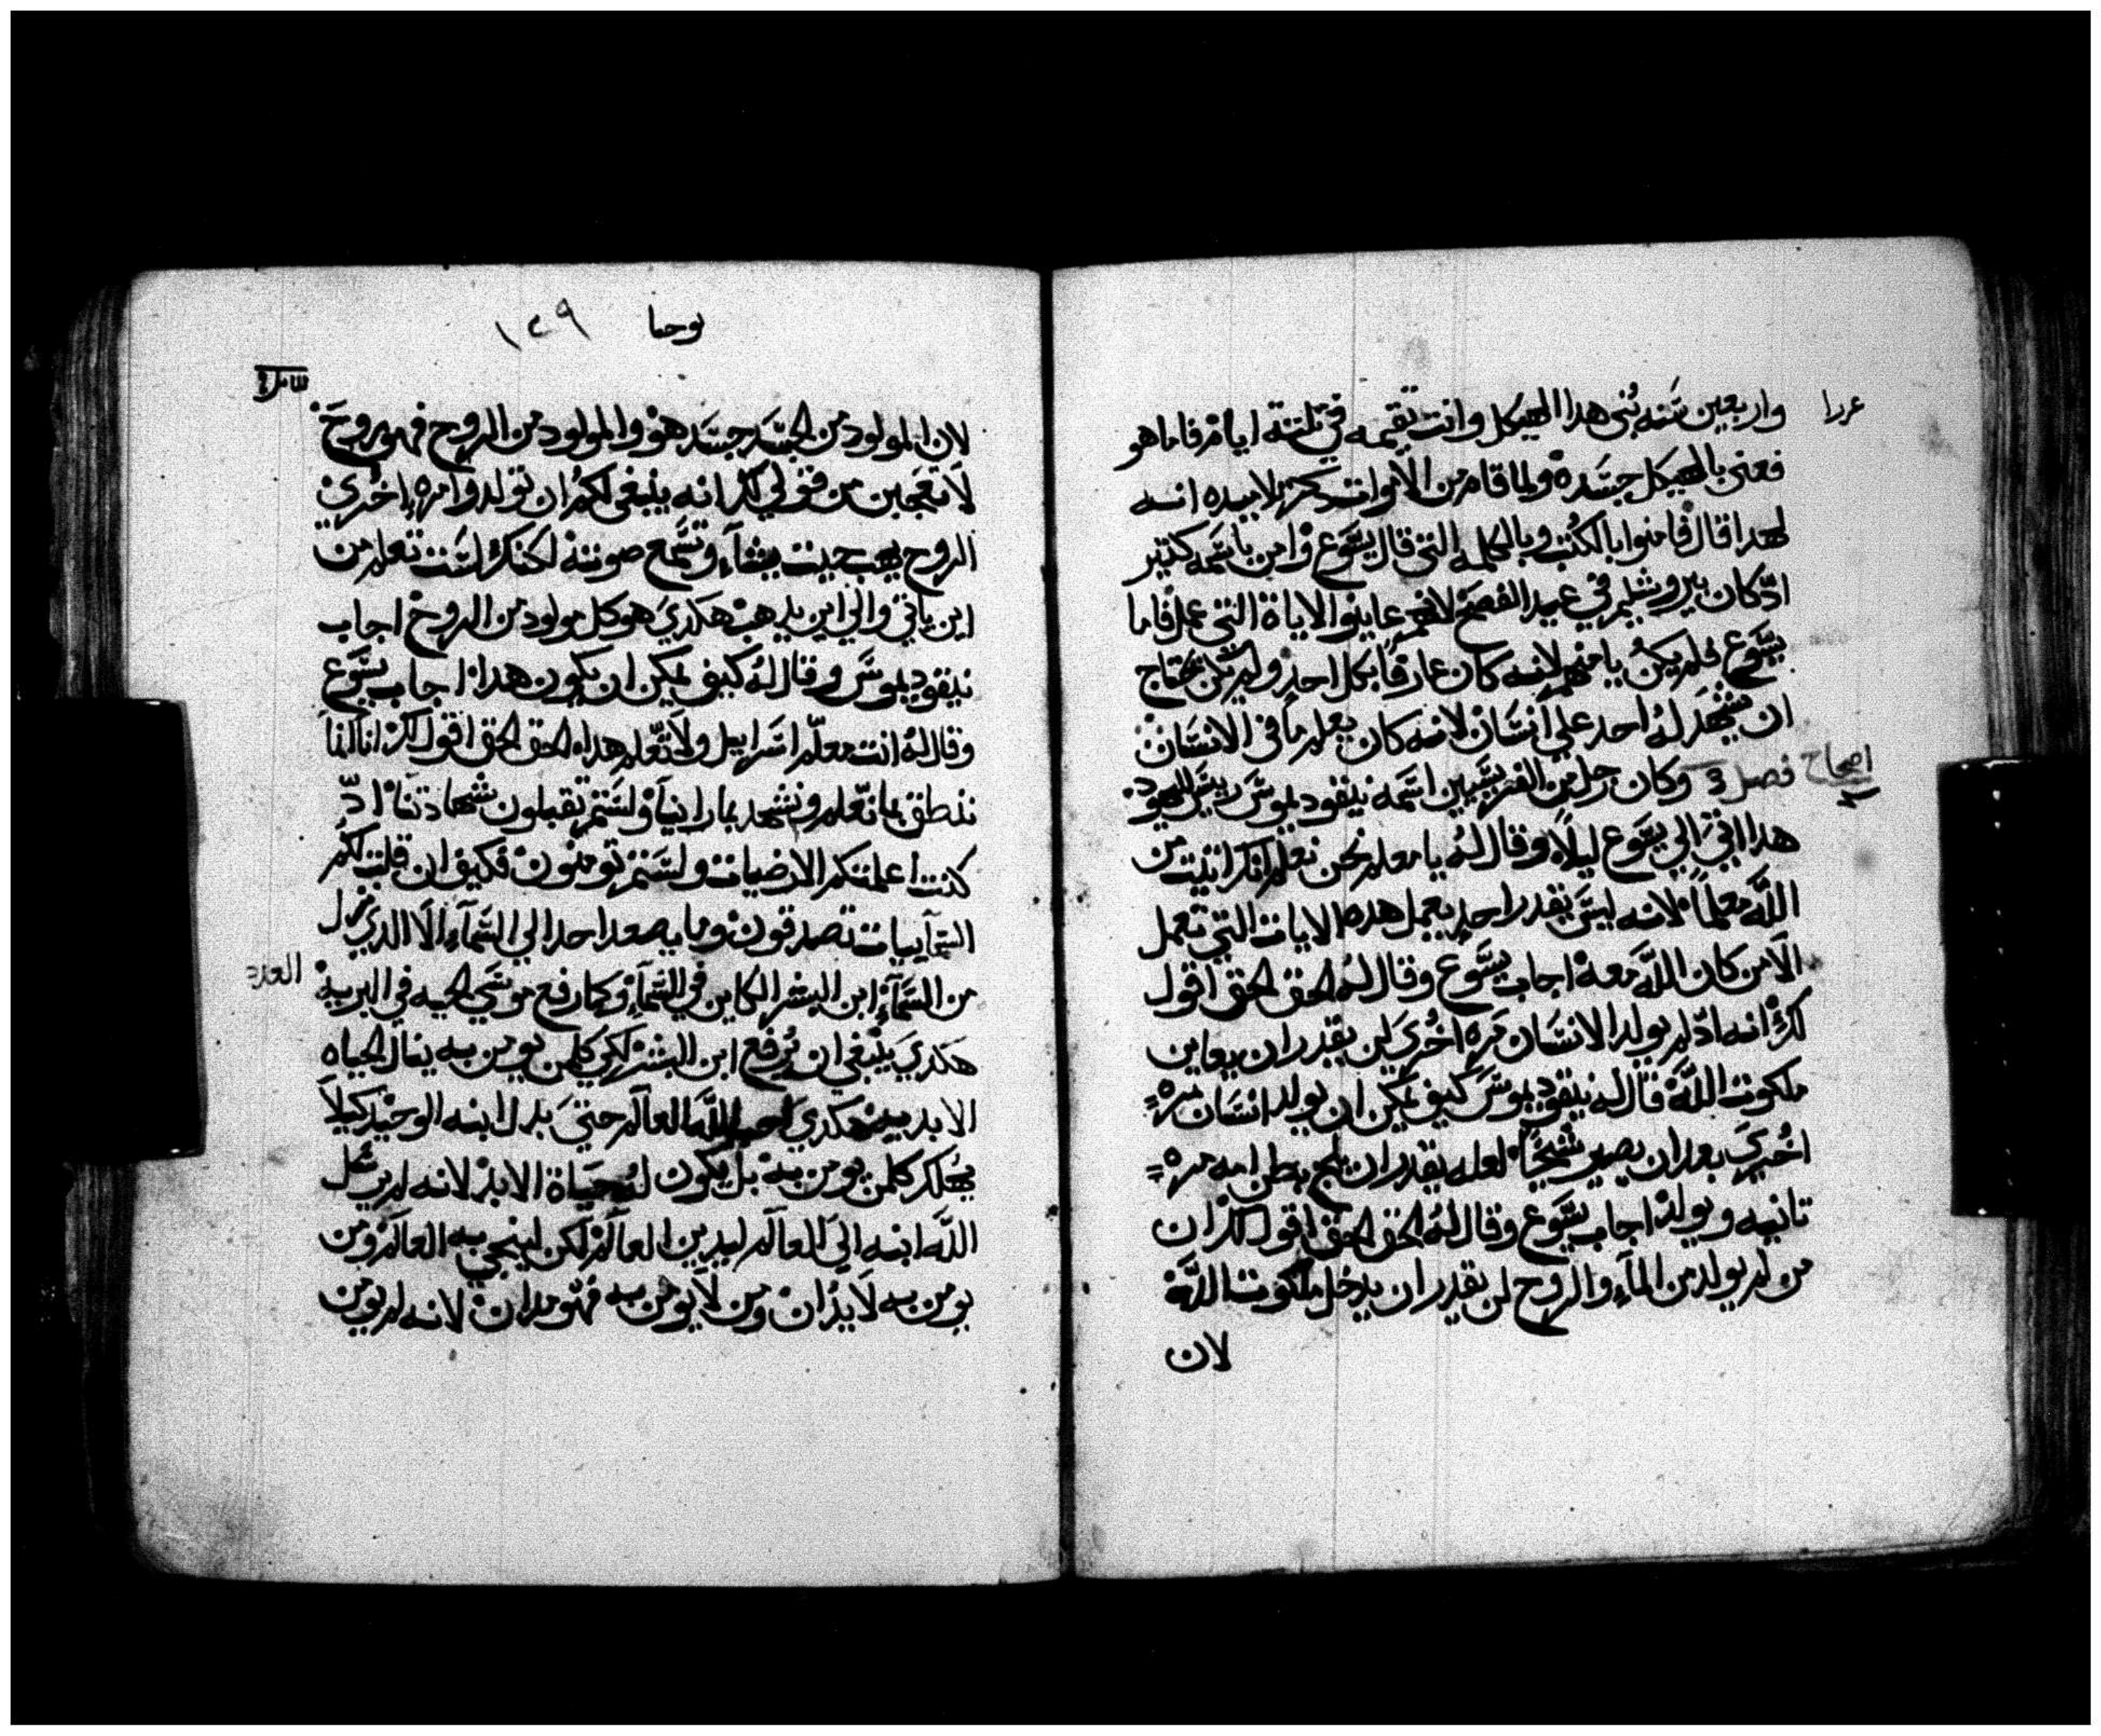 عزرا
واربعين سَنه بُني هدا الهيكل وانت تقيمه في تلتة ايام فاما هو
فعنى بالهيكل جسَده ولما قام من الاموات تلاميده انه
لهدا قال فامنوا بالكُتب وبالكلمه التي قال يسَوع وامن باسَمه كتير
ادّ كان بيروشليم في عيد الفصح لانهم عاينوا الاياة التي عمل فاما
يسَوع فلم يكنُ يامنهم لانه كان عارفاً بكل احد ولم يكن يحتاج
ان يشهَد لهُ احد علي انسَان لانه كان يعلم ما في الانسَان
اصحاح ٣ فصل 3 وكان رجل من الفريسَيين اسَمه نيقوديموسَ رييسَ لليهود
هدا اتىَ الي يسَوع ليلاً وقال لهُ يا معلم نحن نعلم انك اتيت من
اللَّه معلماً لانه ليسَ يقدر احد يعمل هده الايات التي تعمل
الَا من كان اللَّه معه اجاب يسَوع وقال لهُ الحق الحق اقول
لكَ انه ادّ لم يولد الانسَان مره اخُريَ لن يقدر ان يعاين
ملكوت اللَّه قال له نيقوديموسَ كيف يمكن ان يولد انسَان مره
اخُريَ بعد ان يصير شيخاً لعله يقدر ان يلج بطن امه مره
تانيه ويولد اجاب يسَوع وقال لهُ الحق الحق اقول لك ان
من لم يولد من المآء والروح لن يقدر ان يدخل ملكوت اللَّه
لان
يوحنا ١٢٩
لان المولود من الجسَد جسَد هو والمولود من الروح فهو روح
لَا تعجبن من قولي لك انه ينبغي لكم ان تولدوا مره اخُري
الروح يهب حيت يشآء وتسَمع صوته لكنك لسَت تعلم من
اين ياتي والي اين يدهب هكديَ هو كل مولود من الروح اجاب
نيقوديموسَ وقال لهُ كيف يمكن ان يكون هدا اجاب يسَوع
وقال لهُ انت معلّم اسَراييل ولَا تعلم هدا الحق الحق اقول لك اننا انما
ننطق بما نعلم ونشهد بما راينا ولسَتم تقبلون شهادتنا ادّ
كنت اعلمتكم الارضيات ولسَتم تومنون فكيف ان قلت لكم
السَمآييات تصدقون وما يصعد احد الي السَمآء الَا الدي نزل
من السَمآء ابن البشر الكاين في السَمآء وكما رفع موسَي الحيه في البريه
العدد
هكديَ ينبغي ان يُرفع ابن البشر لكي كلمن يومن به ينال الحياه
الابديه هكديَ احب اللَّه العالم حتيَ بدل ابنه الوحيد كيلَا
يهلك كلمن يومن به بل يكون لهُ حيَاة الابد لانه لم يرسَل
اللَّه ابنه الىَ العالم ليدين العالم لكن لينجي به العالم ومن
يومن به لَا يدُان ومن لَا يومن به فهّو مدان لانه لم يومن